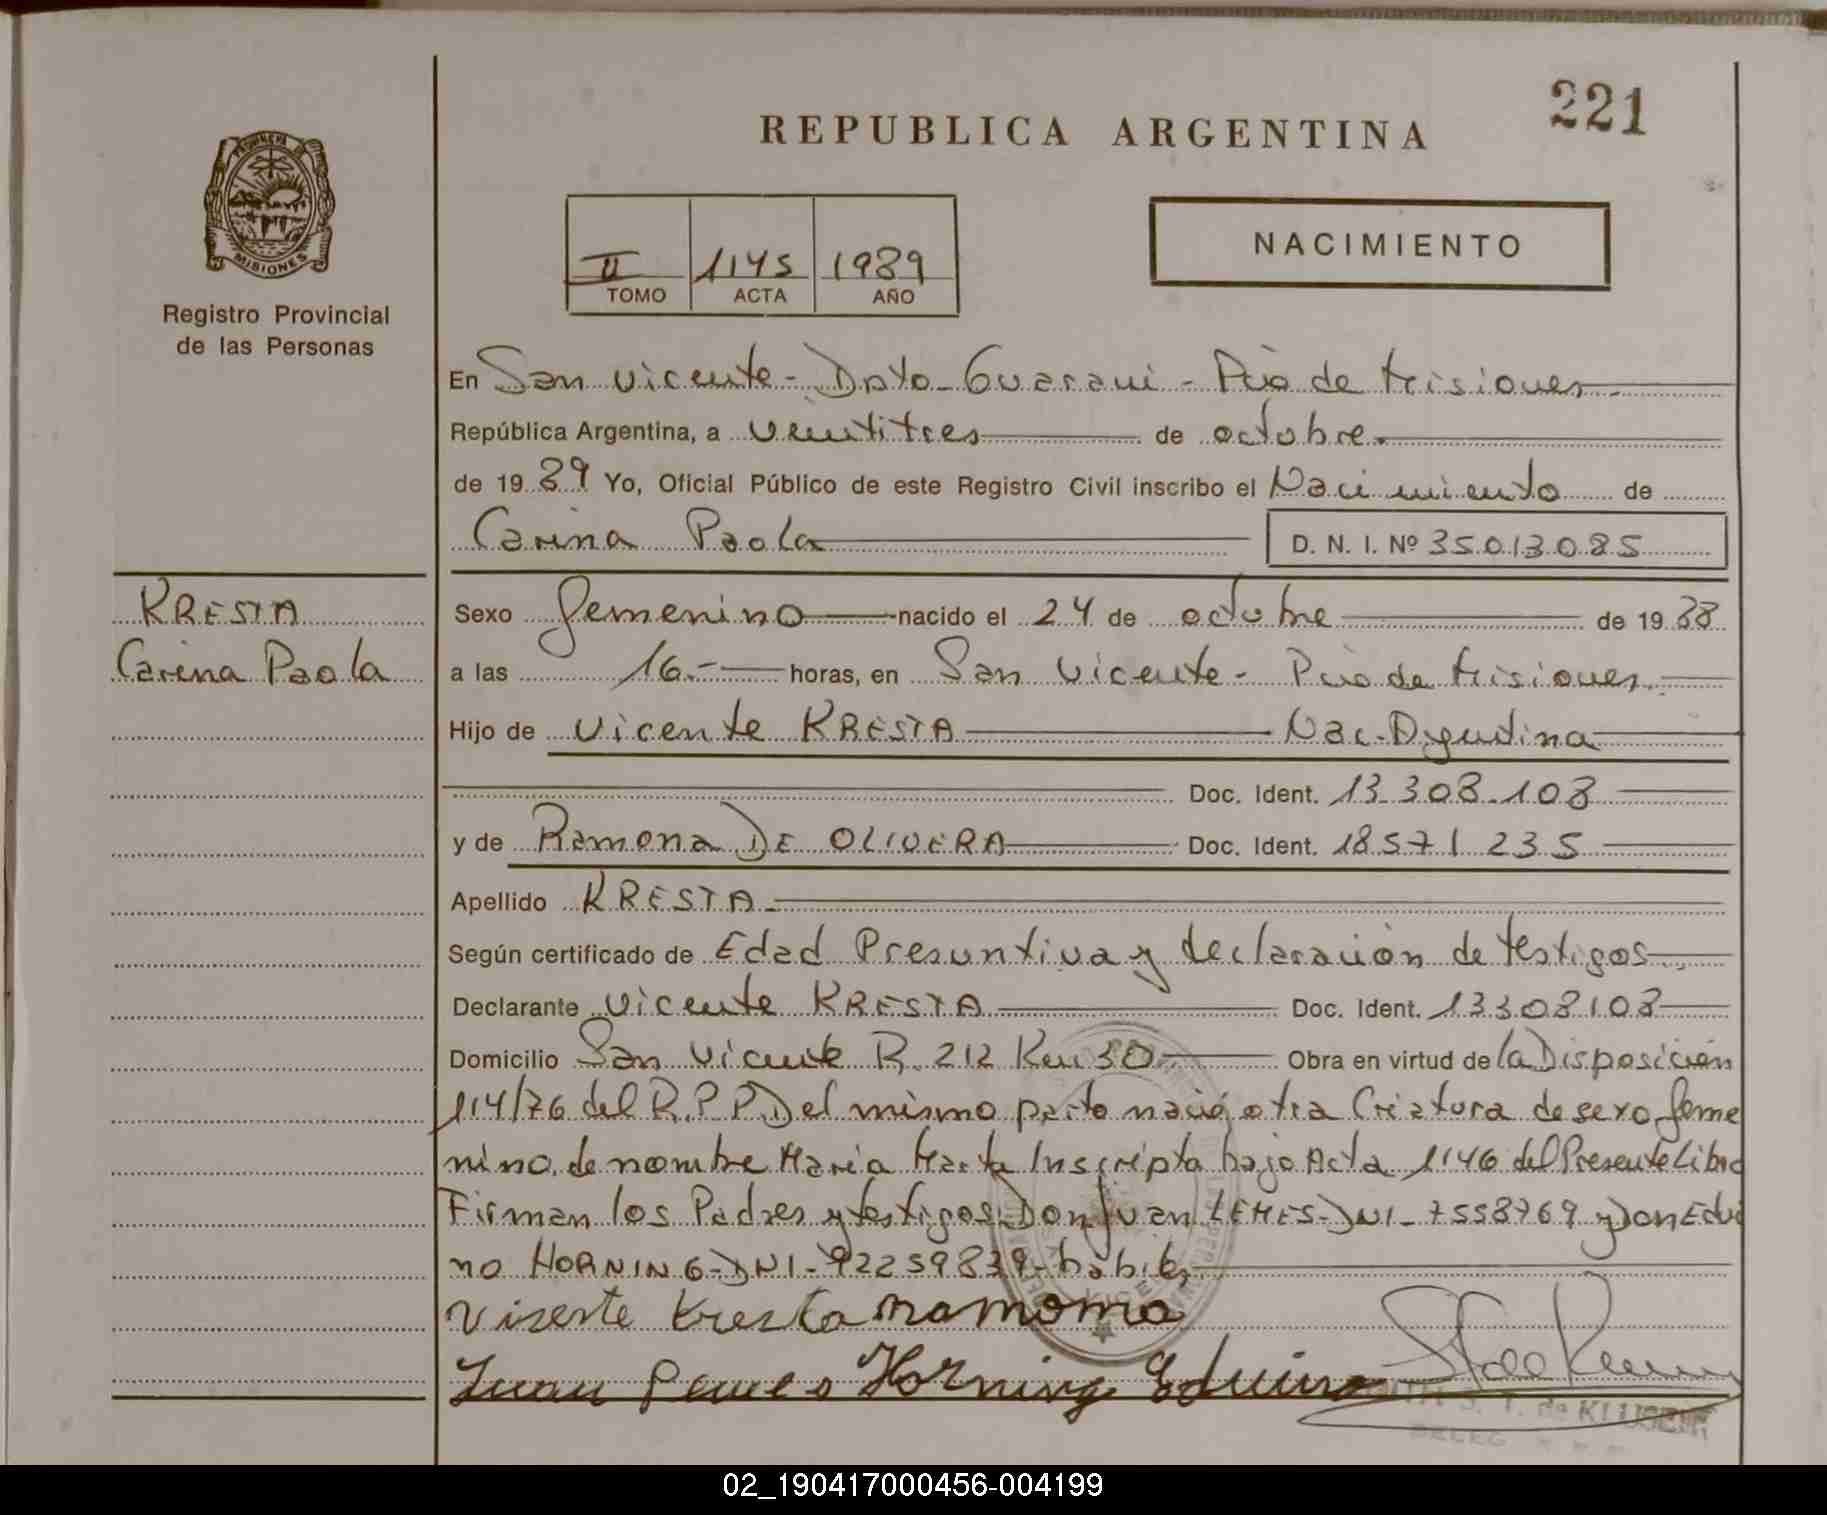 221
REPUBLICA ARGENTINA
PROVINCIA DE
MISIONES
Registro Provincial
de las Personas
II 1145 1989
TOMO ACTA AÑO
NACIMIENTO
En San Vicente - Dpto - Guarani - Pcia de Misiones
República Argentina, a veintitres de octubre.
de 19 89 Yo, Oficial Público de este Registro Civil inscribo el Nacimiento de
Carina Paola D. N. I. Nº 35013085
KRESTA
Carina Paola
Sexo femenino nacido el 24 de octubre de 19 88
a las 16.- horas, en San Vicente - Pcia de Misiones.
Hijo de Vicente KRESTA Nac. Argentina
Doc. Ident. 13.308.108
y de Ramona DE OLIVERA Doc. Ident. 18571235
Apellido KRESTA
Según certificado de Edad Presuntiva y declaración de testigos
Declarante Vicente KRESTA Doc. Ident. 13308108
Domicilio San Vicente R. 212 Km 30 Obra en virtud de la Disposición
114/76 del R.P.P. Del mismo parto nació otra Criatura de sexo feme
nino, de nombre Maria Marta Inscripta bajo Acta 1146 del Presente Libro
Firman los Padres y testigos Don Juan LEMES-DNI-7558769 y Don Edui
no HORNING-DNI-92259839-habiles
Viserte Kresta ramoma
Juan Horning Eduino
de KLUSENER
DELEG
02_190417000456-004199